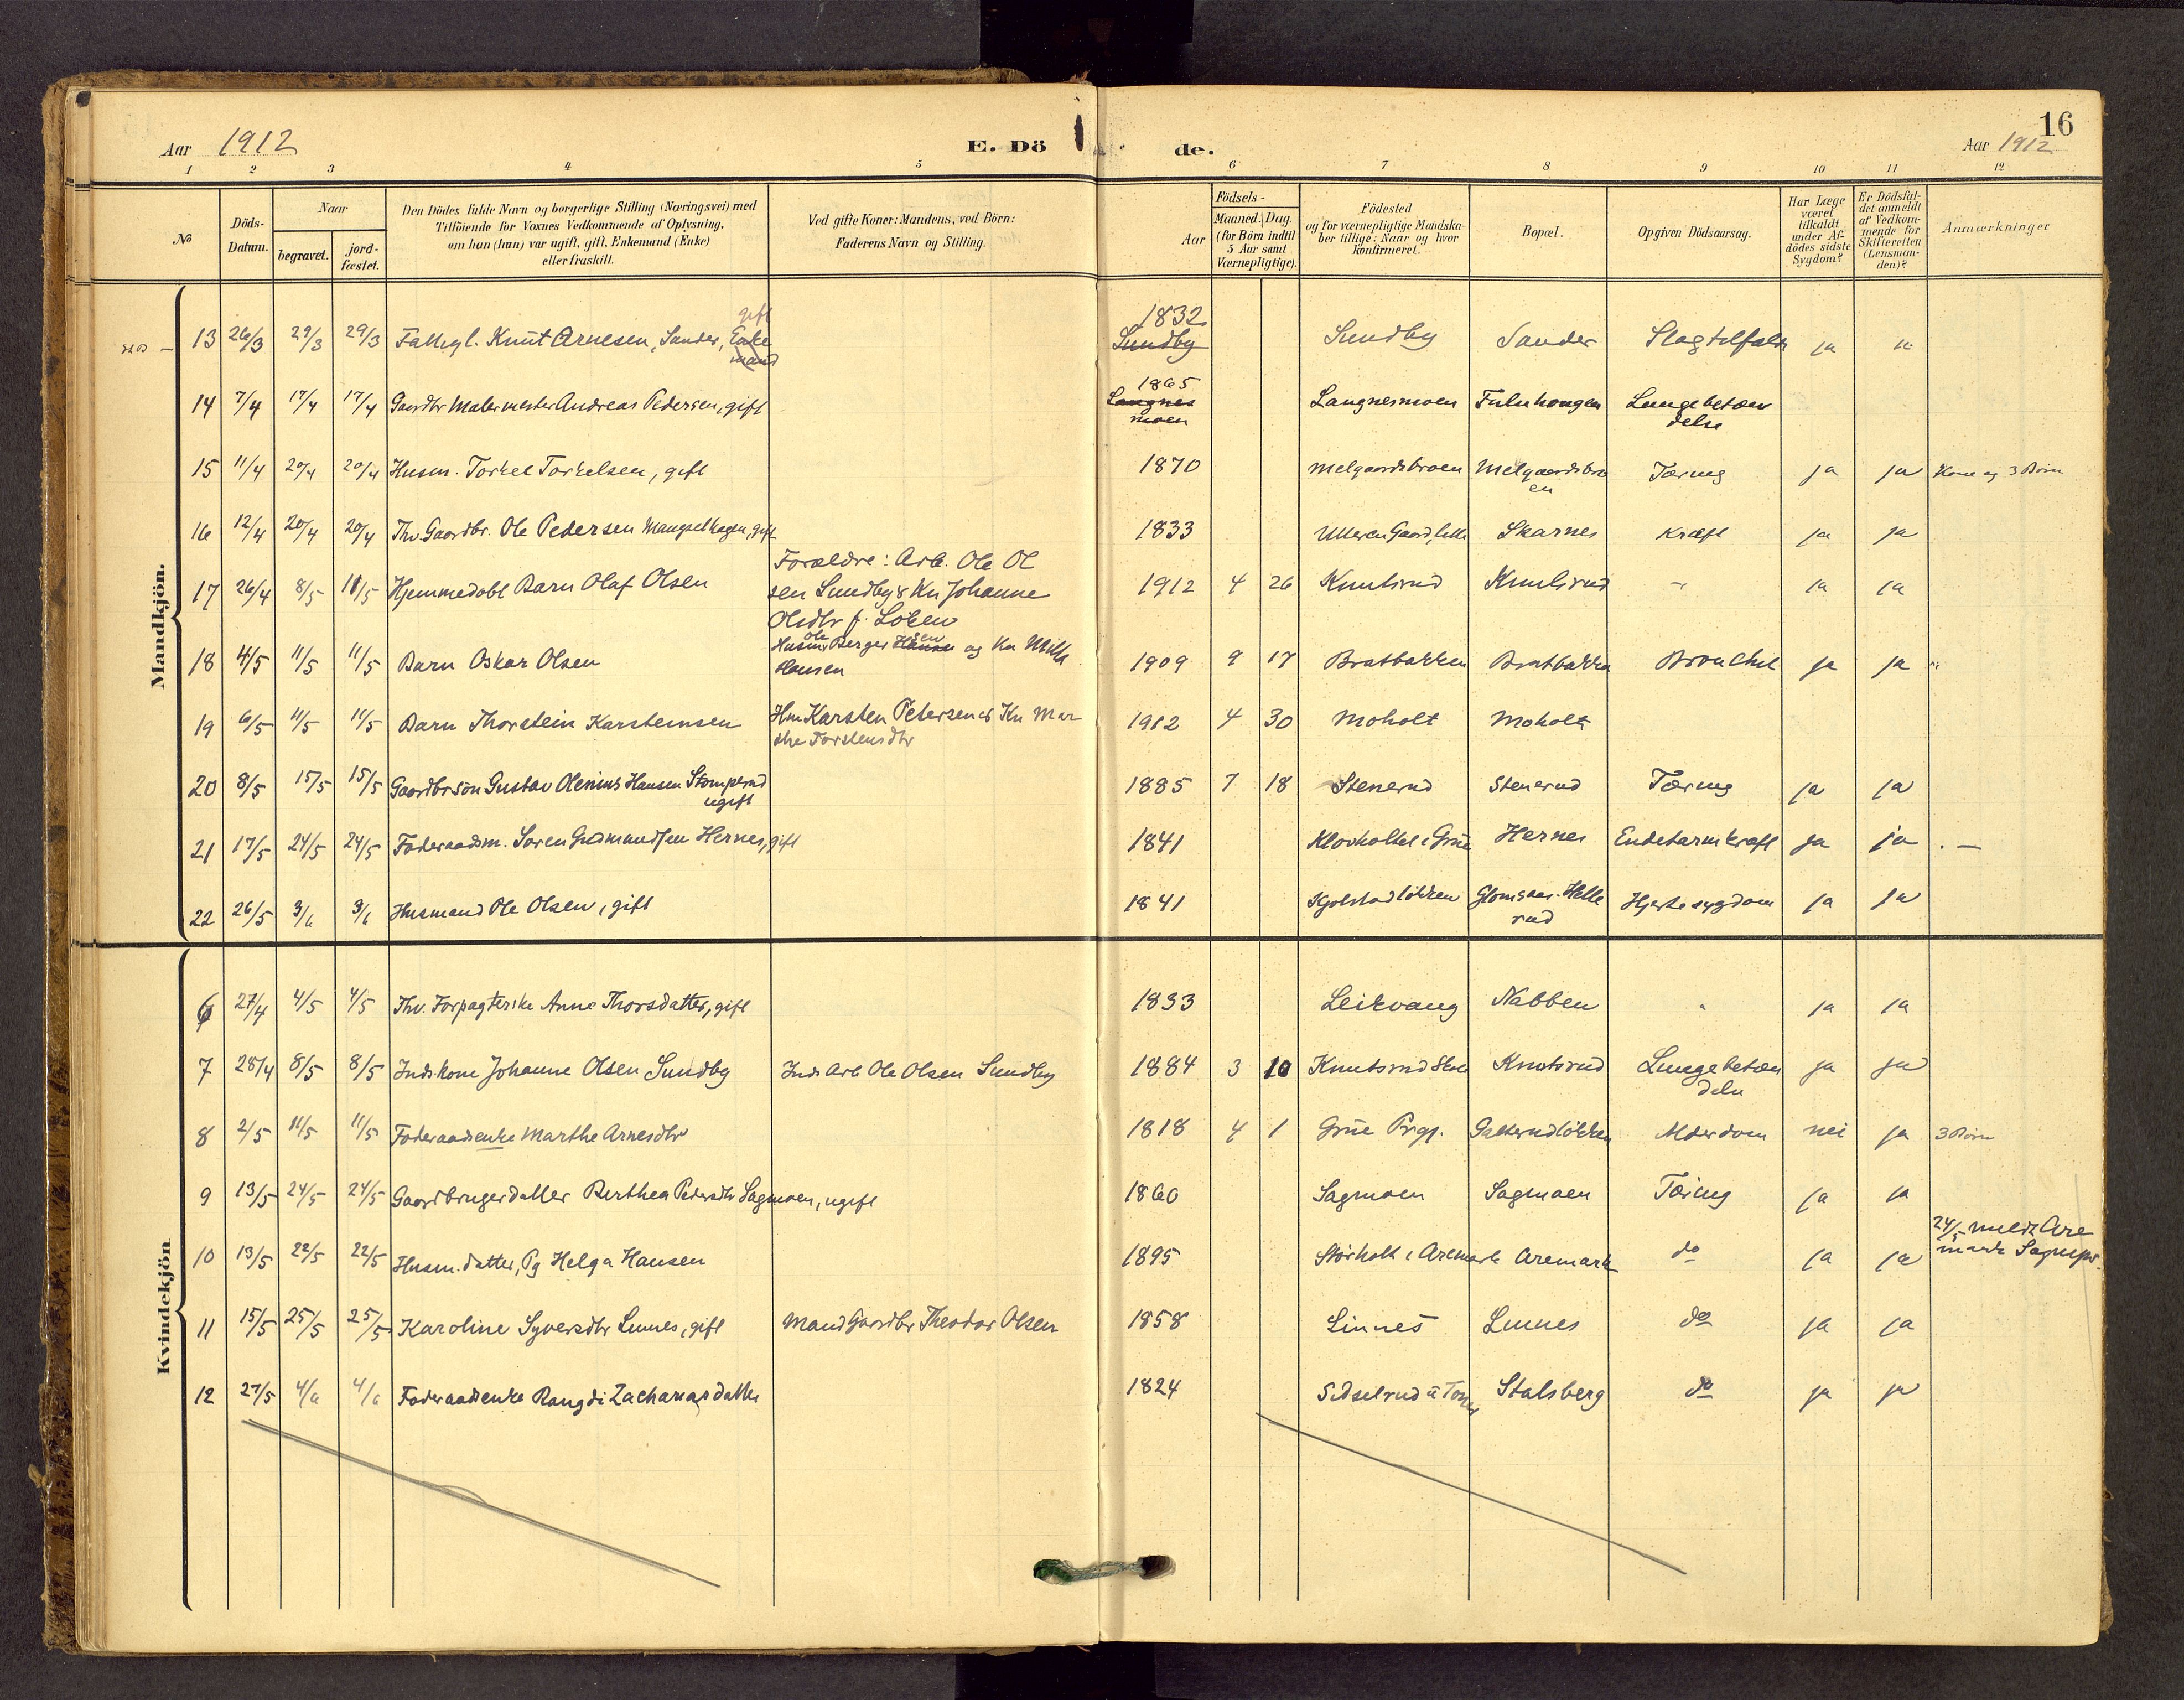 16
Aar 1912 E. Dö de. Aar 1912
1 2 3 4 5 6 7 8 9 10 11 12
No
Döds-Datum.
Naar
begravet.
jord-fæstet.
Den Dödes fulde Navn og borgerlige Stilling (Næringsvei) med
Tilföiende for Voxnes Vedkommende af Oplysning,
om han (hun) var ugift, gift, Enkemand (Enke)
eller fraskilt.
Ved gifte Koner: Mandens, ved Börn:
Faderens Navn og Stilling.
Födsels-
Aar
Maaned. Dag
(for Börn indtil
5 Aar samt
Værnepligtige).
Födested
og for værnepligtige Mandska-
ber tillige: Naar og hvor
konfirmeret.
Bopæl.
Opgiven Dödsaarsag.
Har Læge
været
tilkaldt
under Af-
dödes sidste
Sygdom?
Er Dödsfal-
det anmeldt
af Vedkom-
mende for
Skifteretten
(Lensman-
den)?
Anmærkninger
Mandkjön.
13 26/3 29/3 29/3 Fattigl. Knut Arnesen, Sander, Enke mand gift 1832 Sundby Sundby Sander Slagtilfælde ja "
14 7/4 17/4 17/4 Gaardbr Malermester Andreas Pedersen, gift 1865 Langnes moen Langnesmoen Fuluhaugen Lungebetæn delse
15 11/4 20/4 20/4 Husm. Torkel Torkelsen, gift 1870 Melgaardsbroen Melgaardsbro en Tæring ja ja Kone og 3 Börn
16 12/4 20/4 20/4 Thv. Gaardbr. Ole Pedersen Mangselhagen, gift 1833 Ulleren Gaard, Skarnes Kræft ja ja
17 26/4 8/5 11/5 Hjemmedöbt Barn Olaf Olsen Forældre: Arb. Ole Ol sen Lundby & Ku Johanne Olsdtr f. Löken 1912 4 26 Knutsrud Knutsrud " ja ja
18 4/5 11/5 11/5 Barn Oskar Olsen Husm. Ole Berger Hansen og Ku Milla Hansen 1909 9 17 Bratbakken Bratbakken Bronchit ja ja "
19 6/5 11/5 11/5 Barn Thorstein Karstensen Hm Karsten Petersen & Ku Mar the Torstensdtr 1912 4 30 Moholt Moholt
20 8/5 15/5 15/5 Gaardbr sön Gustav Olenius Hansen Stomperud ugift 1885 7 18 Stenerud Stenerud Tæring ja ja
21 17/5 24/5 24/5 Foderaadsm. Soren Gudmundsen Hernes, gift 1841 Klovholtet i Grue Hernes Endetarmkræft ja ja . —
22 26/5 3/6 3/6 Husmand Ole Olsen, gift 1841 Kjolstadlökken Glomsaas. Helle rud Hjertesygdom ja ja
Kvindekjön
6 27/4 4/5 4/5 Thv. Forpagterske Anne Thorsdatter, gift 1833 Leikvang Nabben " ja ja
7 28/4 8/5 8/5 Inds kone Johanne Olsen Sundby Inds Arb Ole Olsen Sundby 1884 3 10 Knutsrud Knutsrud Lungebetæn delse ja ja
8 2/5 11/5 11/5 Foderaadsenke Marthe Arnesdtr 1818 4 1 Grue Prgj. Galterudlökken Alderdom nei ja 3 Börn
9 13/5 24/5 24/5 Gaardbrugerdatter Berthea Pedersdtr Sagmoen, ugift 1860 Sagmoen Sagmoen Tæring ja ja
10 13/5 22/5 22/5 Husm. datter, Pg Helga Hansen 1895 Störholt i Aremark Aremark do ja ja 24/5 meldt Are marks Sognepr.
11 15/5 25/5 25/5 Karoline Syversdtr Linnes, gift Mand Gaardbr Theodor Olsen 1858 Linnes Linnes do ja ja
12 27/5 4/6 4/6 Foderaadsenke Rangdi Zachariasdatter 1824 Sidselrud Stalsberg do ja ja